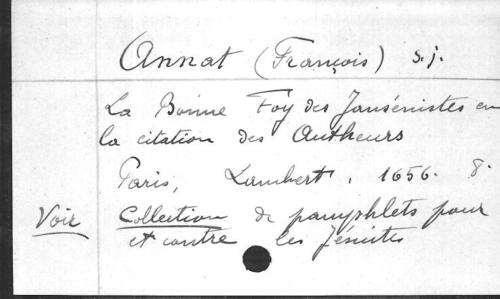 Annat (François) s.j.
La Bonne Foy des Jansénistes en
la citation des Autheurs
Paris, Lambert, 1656. 8°
Voir Collection de pamphlets pour
et contre les Jésuites